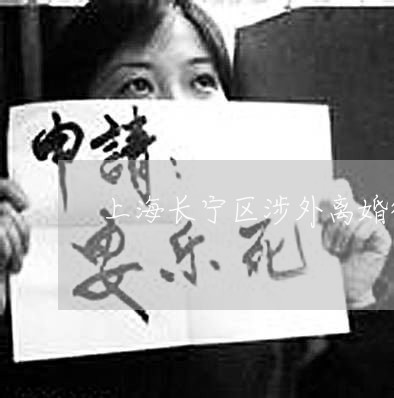 申請：
上海长宁区涉外离婚
安乐死